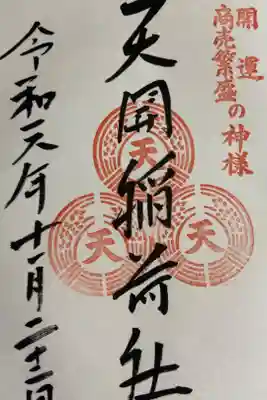 開運
商売繁盛の神様
天開稲荷社
天
天
天
令和元年十一月二十二日